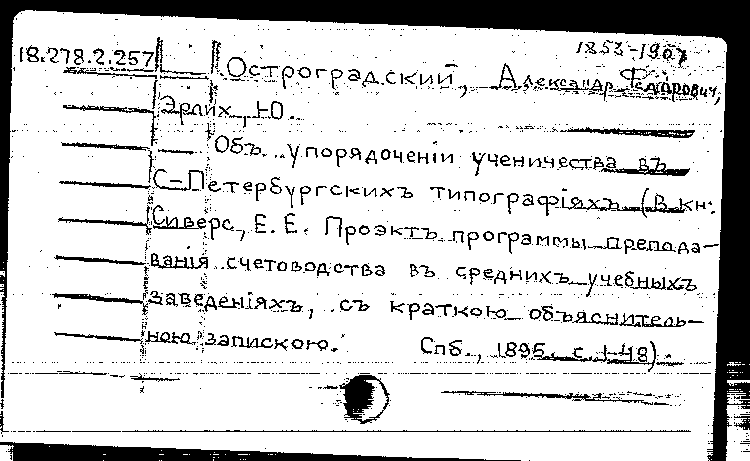 1853-1907
18.278.2.257
Остроградский, Александр Федорович,
Эрлих, Ю.
Объ упорядоченіи ученичества въ
С-Петербургскихъ типографіяхъ (В кн:
Сиверс, Е. Е. Проэктъ программы препода-
ванія счетоводства въ средних учебных
заведеніяхъ, съ краткою объяснитель-
ною запискою. Спб., 1895. с. 1-48).